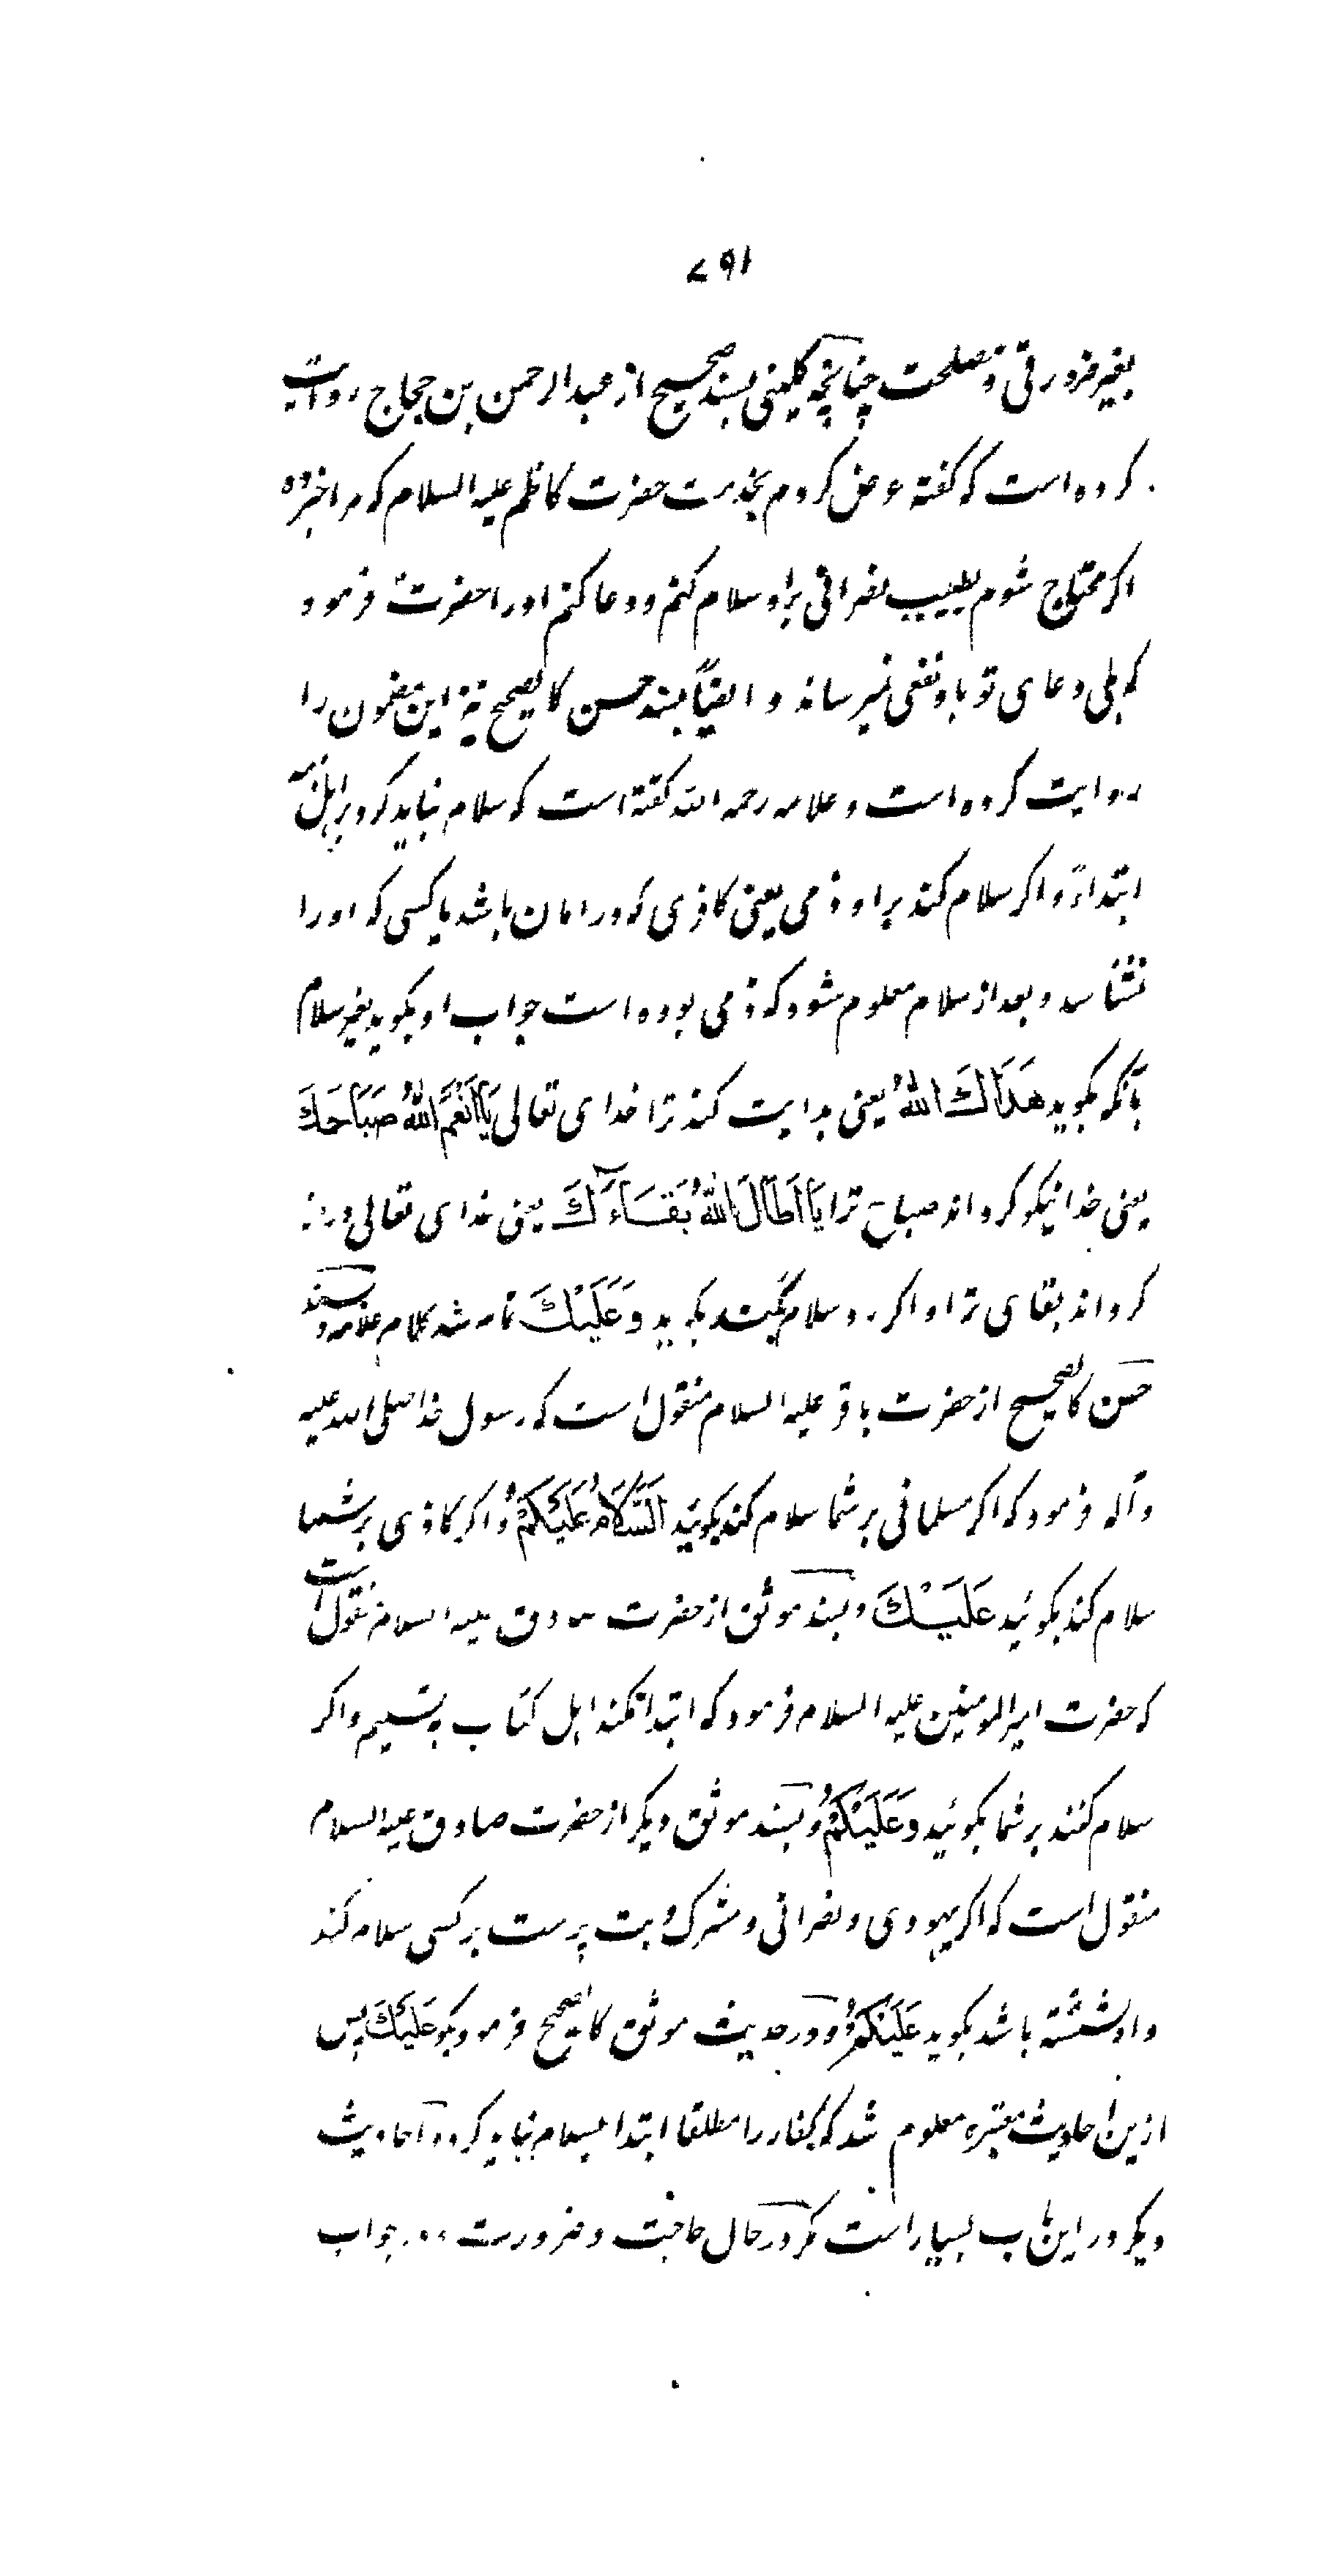 ۷۹۱
بغیر ضرورتی و مصلحت چنانچه کلینی بسند صحیح از عبدالرحمن بن حجاج روایت
کرده است که گفته عرض کردم بخدمت حضرت کاظم علیه السلام که مرا خبر ده
اکر محتاج شوم بطبیب نصرانی براو سلام کنم و دعا کنم اورا حضرت فرمود
که بلی دعای تو باو نفعی نمیرساند و ایضاً بسند حسن کالصحیح نیز این مضمون را
روایت کرده است و علامه رحمه الله کفته است که سلام نباید کرد بر اهل ذمه
ابتداءً و اکر سلام کند براو ذمی یعنی کافری که در امان باشد یا کسی که اورا
نشناسد و بعد از سلام معلوم شود که ذمی بوده است جواب او بکوید بغیر سلام
بآنکه بکوید هَدَاكَ اللهُ یعنی هدایت کند ترا خدای تعالی یا اَنْعَمَ اللهُ صَبَاحَكَ
یعنی خدا نیکو کرداند صباح ترا یا اَطَالَ اللهُ بَقَاءَكَ یعنی خدای تعالی دراز
کرداند بقای ترا و اکر رد سلام کند بکوید وَعَلَيْكَ تمام شد کلام علامه و بسند
حسن کالصحیح از حضرت باقر علیه السلام منقول است که رسول خدا صلی الله علیه
وآله فرمود که اکر مسلمانی بر شما سلام کند بکوئید اَلسَّلَامُ عَلَيْكُمْ و اکر کافری بر شما
سلام کند بکوئید عَلَيْكَ و بسند موثق از حضرت صادق علیه السلام منقول است
که حضرت امیرالمومنین علیه السلام فرمود که ابتدا نکنند اهل کتاب به تسلیم و اکر
سلام کنند بر شما بکوئید وَعَلَيْكُمْ و بسند موثق دیکر از حضرت صادق علیه السلام
منقول است که اکر یهودی و نصرانی و مشرک و بت پرست بر کسی سلام کند
و او نشسته باشد بکوید عَلَيْكُمْ و در حدیث موثق کالصحیح فرمود بکو عَلَيْكَ پس
ازین احادیث معتبره معلوم شد که کفار را مطلقا ابتدا بسلام نباید کرد و احادیث
دیکر در این باب بسیار است مکر در حال حاجت و ضرورت و در جواب